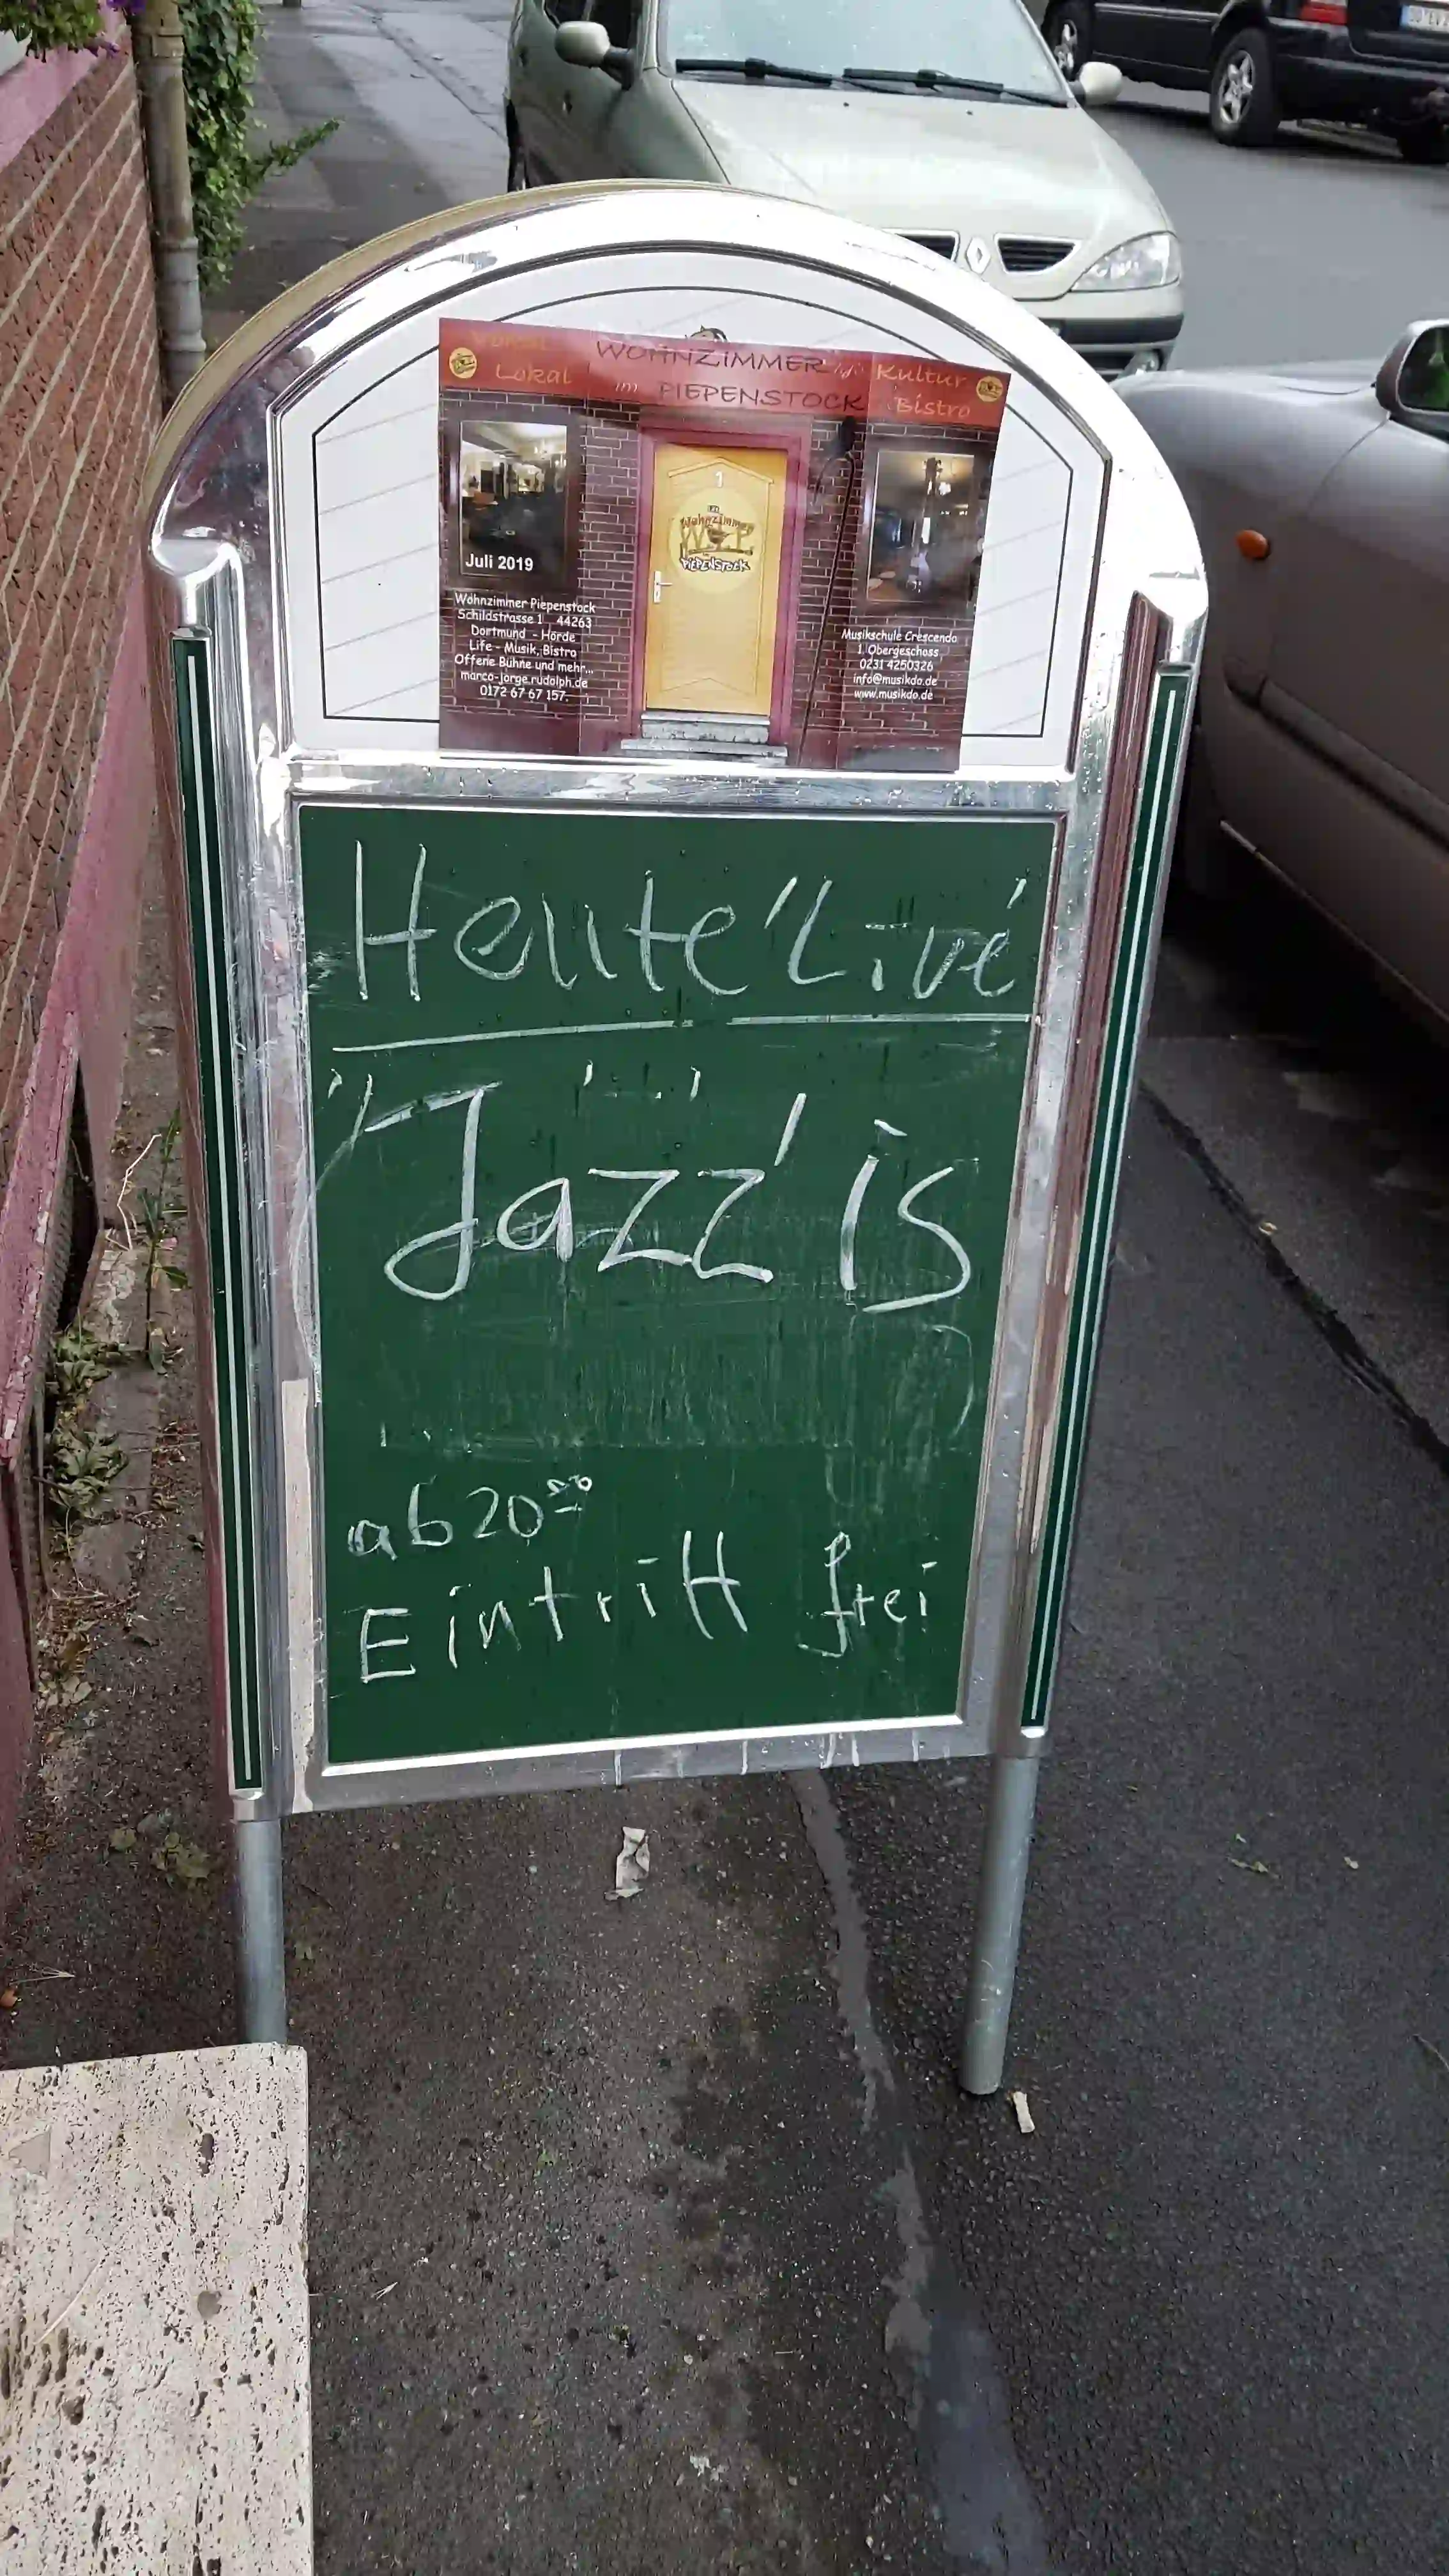 Lokal
WOHNZIMMER
im PIEPENSTOCK
Kultur
Bistro
1
Wohnzimmer
PIEPENSTOCK
Juli 2019
Wohnzimmer Piepenstock
Schildstrasse 1 44263
Dortmund - Hörde
Life - Musik, Bistro
Offene Bühne und mehr...
marco-jorge.rudolph.de
0172 67 67 157
Musikschule Crescendo
1. Obergeschoss
0231 4250326
info@musikdo.de
www.musikdo.de
Heute "Live"
"Jazz" is
ab 20⁰⁰
Eintritt frei